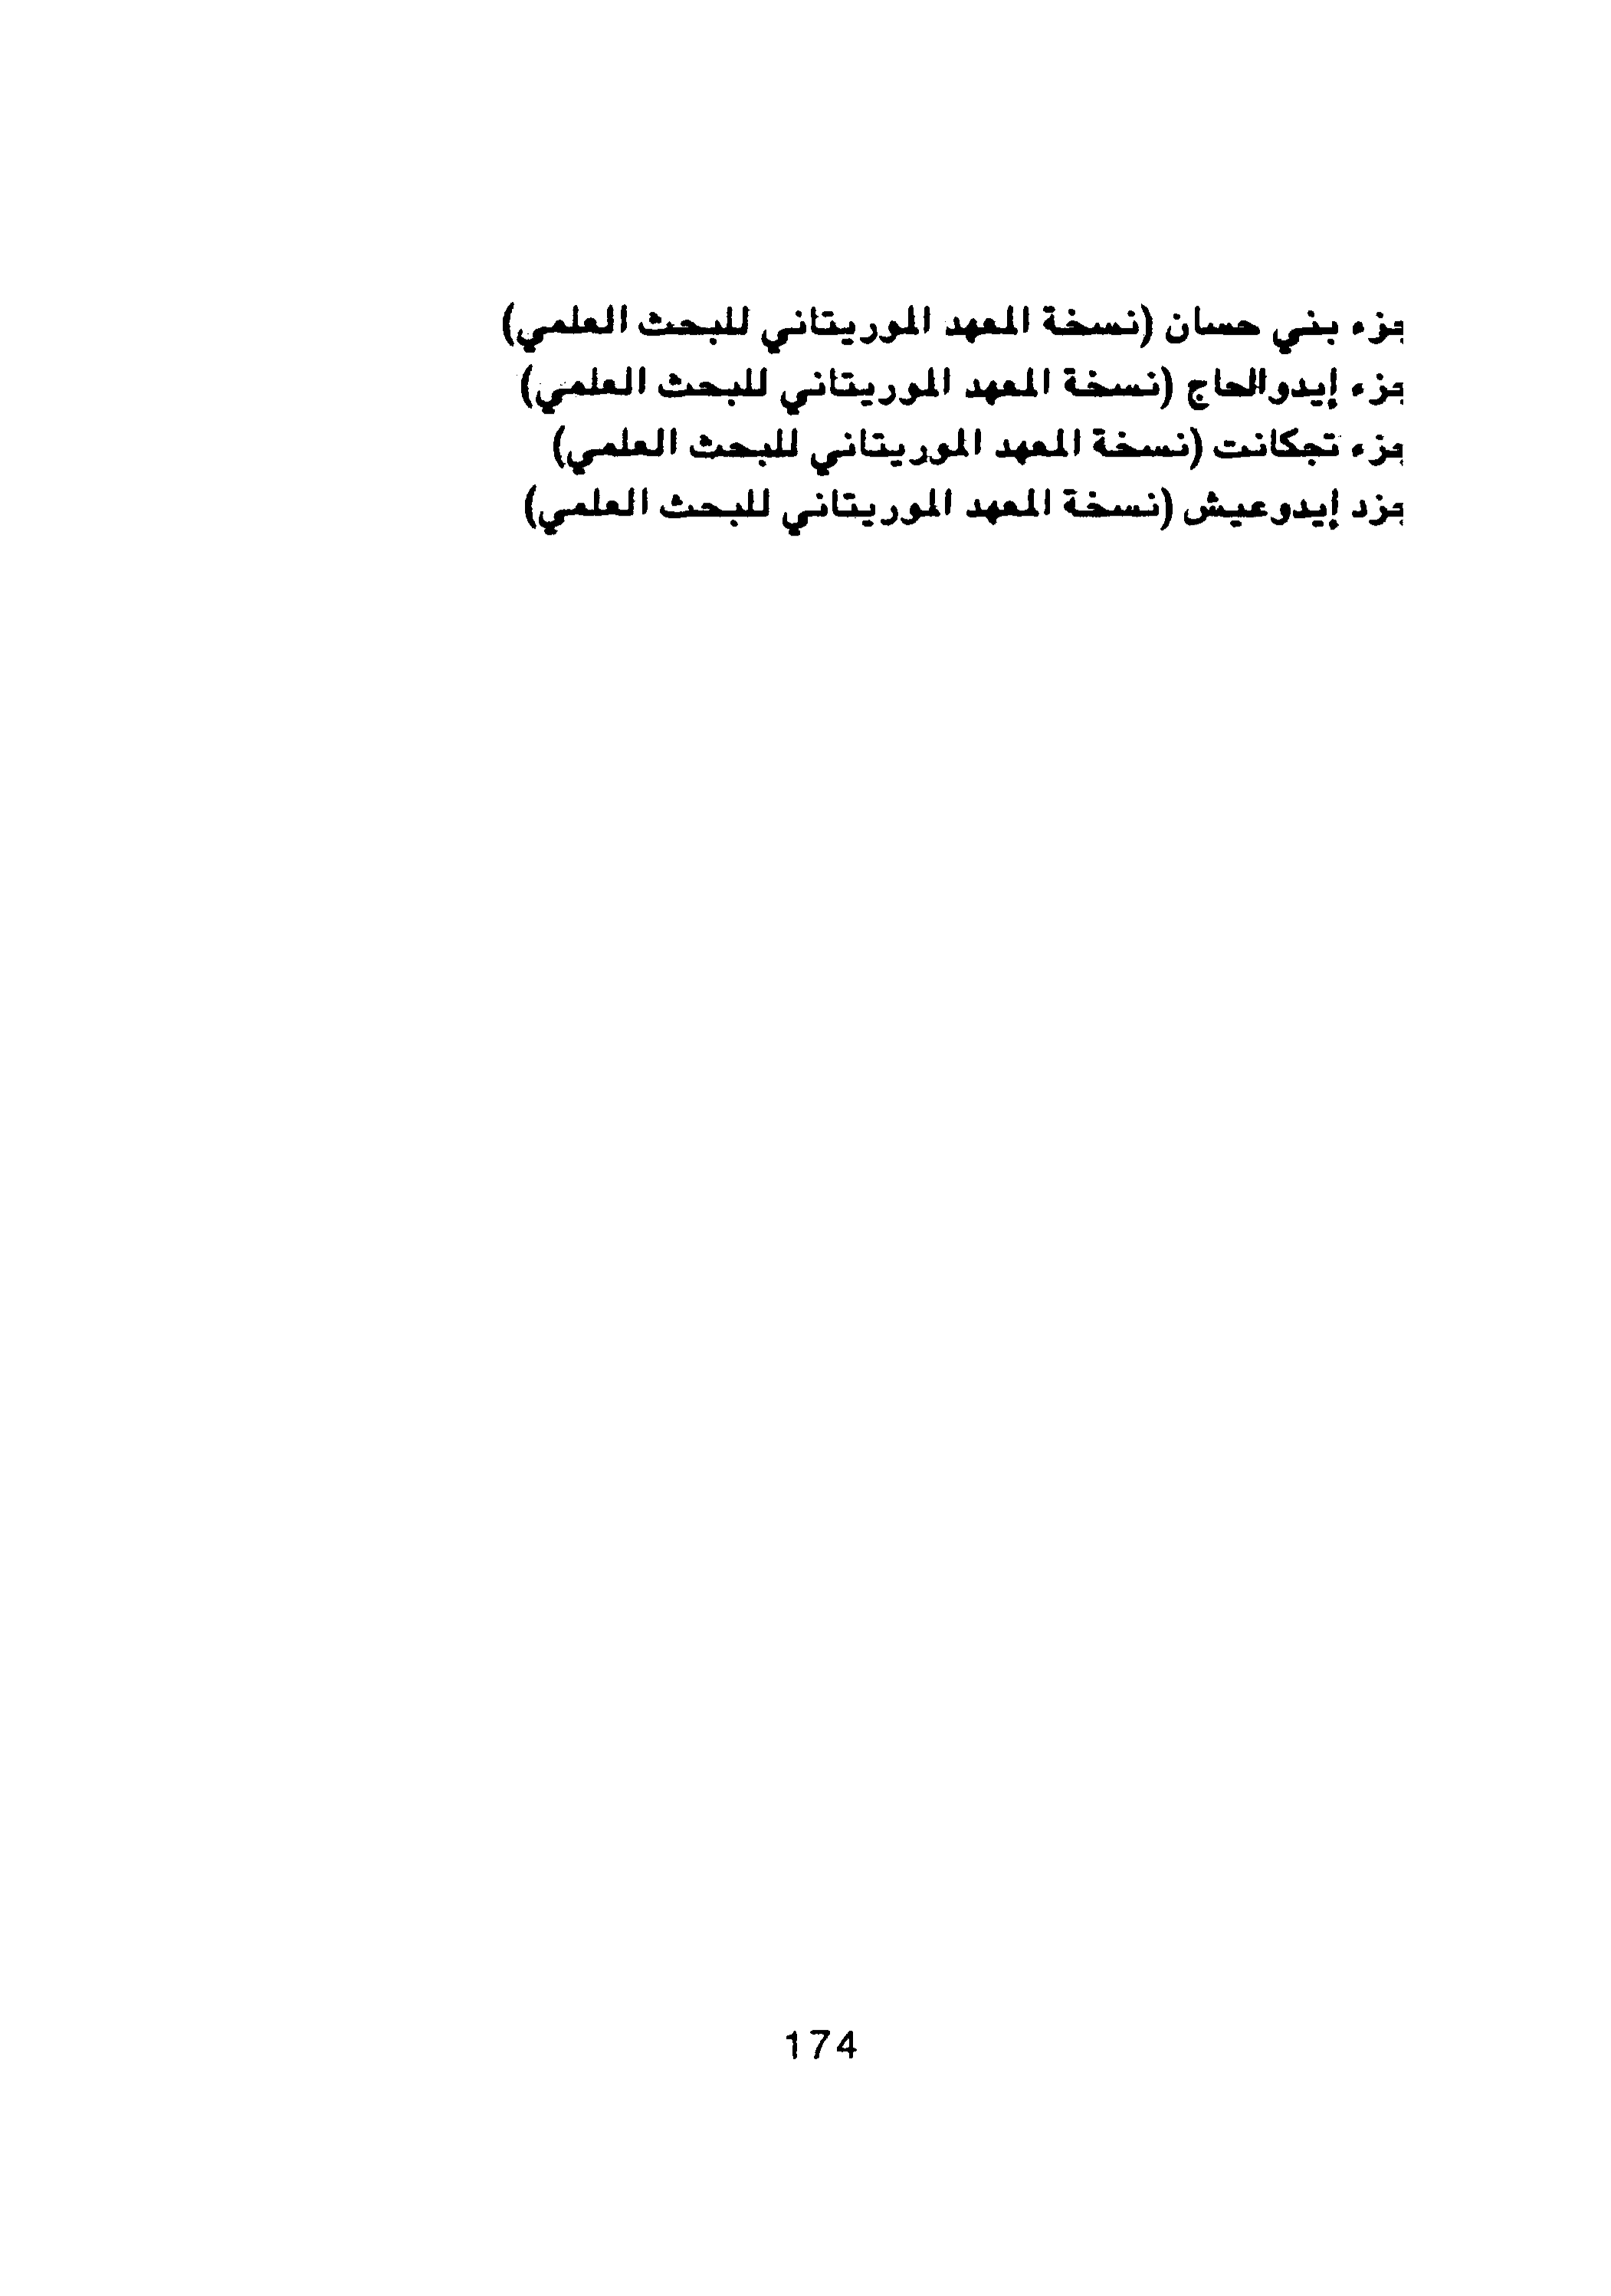 جزء بني حسان (نسخة المعهد الموريتاني للبحث العلمي)
جزء إيدوالحاج (نسخة المعهد الموريتاني للبحث العلمي)
جزء تجكانت (نسخة المعهد الموريتاني للبحث العلمي)
جزد إيدوعيش (نسخة المعهد الموريتاني للبحث العلمي)
174